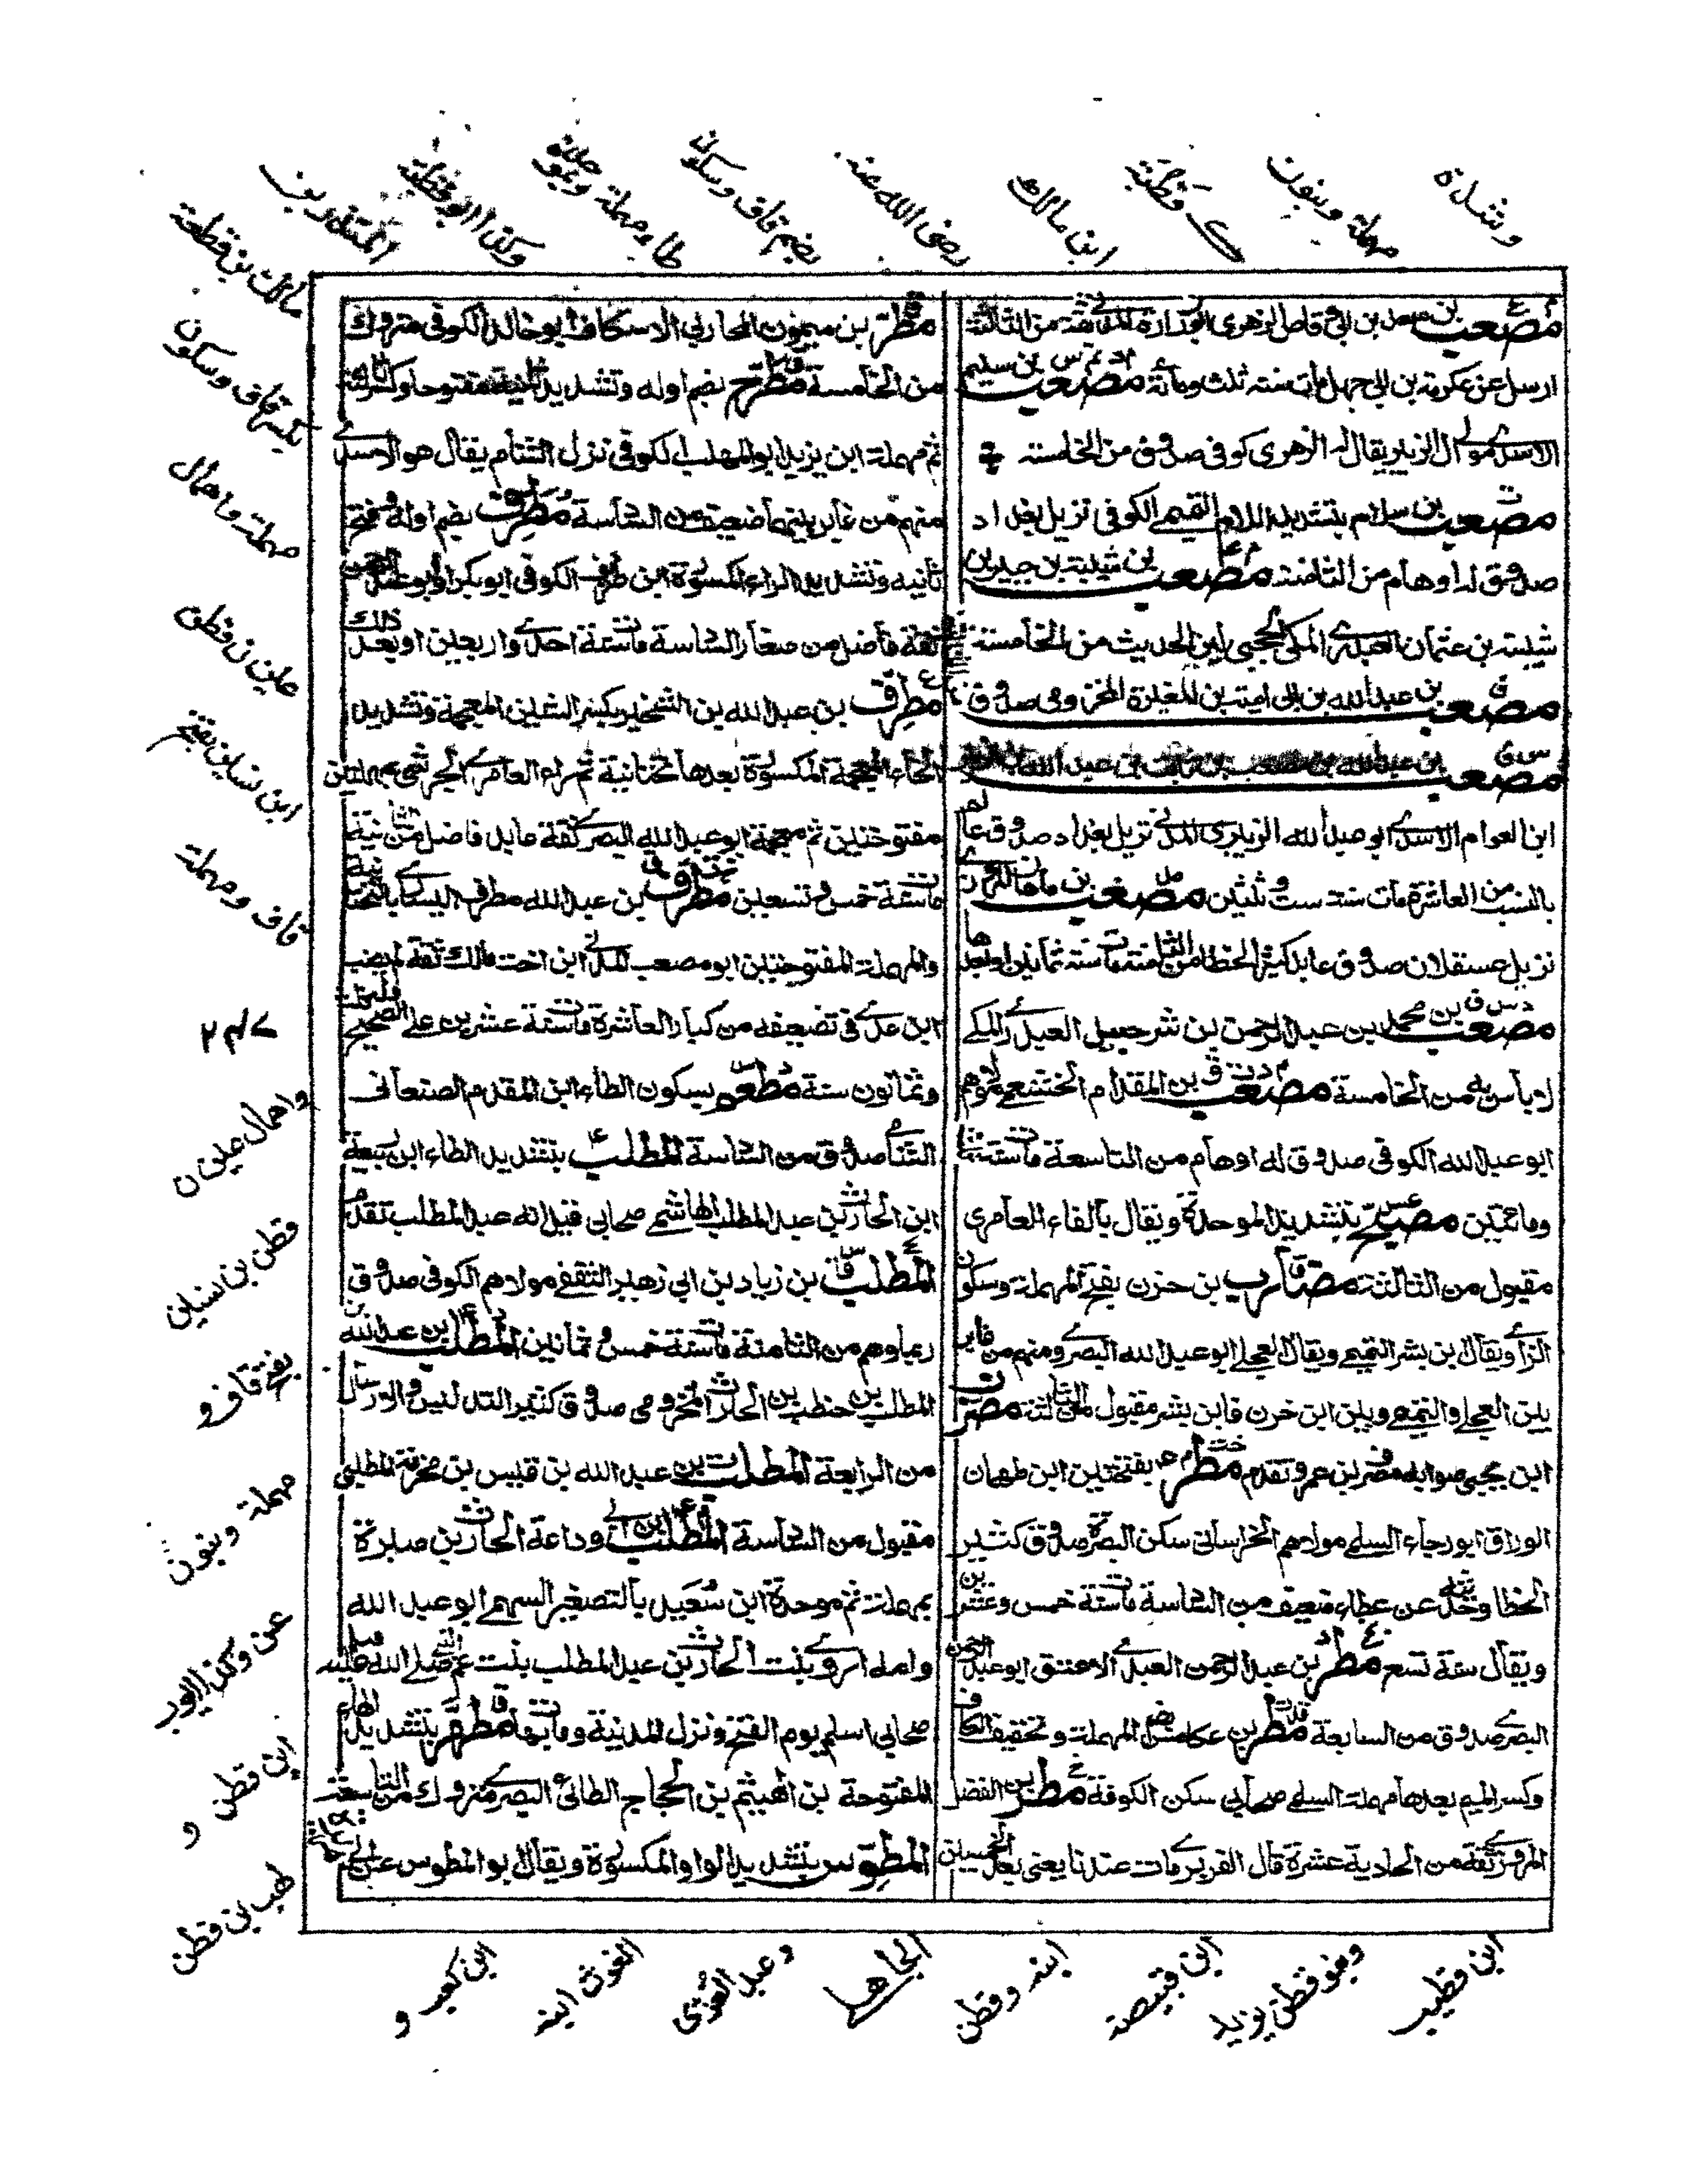 مصعب بن سعد بن ابي وقاص الزهري ابو زرارة المدني ثقة من الثالثة
ارسل عن عكرمة بن ابي جهل مات سنة ثلث ومائة مصعب بن سليم
الاسدي مولى ال الزبير يقال له الزهري كوفي صدوق من الخامسة
مصعب بن سلام بتشديد اللام التميمي الكوفي نزيل بغداد
صدوق له اوهام من الثامنة مصعب بن شيبة بن جبير بن
شيبة بن عثمان العبدري المكي الحجبي لين الحديث من الخامسة
مصعب بن عبدالله بن ابي امية بن المغيرة المخزومي صدوق
مصعب بن عبدالله بن مصعب بن ثابت بن عبدالله
ابن العوام الاسدي ابو عبدالله الزبيري المدني نزيل بغداد صدوق عالم
بالنسب من العاشرة مات سنة ست وثلثين مصعب بن ماهان المروزي
نزيل عسقلان صدوق عابد كثير الخطا من الثامنة مات سنة ثمانين او بعدها
مصعب بن محمد بن عبد الرحمن بن شرحبيل العبدري المكي
لا باس به من الخامسة مصعب بن المقدام الخثعمي مولاهم
ابو عبد الله الكوفي صدوق له اوهام من التاسعة مات سنة ثلث
ومائتين مصبح بتشديد الموحدة ويقال بالفاء العامري
مقبول من الثالثة مضارب بن حزن بفتح المهملة وسكون
الزاي ويقال ابن بشر التميمي ويقال العجلي ابو عبد الله البصري ومنهم من فاير
بين العجلي والتميمي وبين ابن حزن وابن بشر مقبول من الثالثة مضر
ابن يحيى صوابه مضر بن عمرو تقدم مطر بفتحتين ابن طهمان
الوراق ابو رجاء السلمي مولاهم الخراساني سكن البصرة صدوق كثير
الخطا وحديثه عن عطاء ضعيف من السادسة مات سنة خمس وعشرين
ويقال سنة تسع مطر بن عبد الرحمن العبدي الاعنق ابو عبد الرحمن
البصري صدوق من السابعة مطر بن عكامس بضم المهملة وتخفيف الكاف
وكسر الميم بعدها مهملة السلمي صحابي سكن الكوفة مطر بن الفضل
المروزي ثقة من الحادية عشرة قال الفربري مات عندنا يعني بعد الخمسين
مطر بن ميمون المحاربي الاسكاف ابو خالد الكوفي متروك
من الخامسة مطرح بضم اوله وتشديد ثانيه مفتوحا وكسر ثالثه
ثم مهملة ابن يزيد ابو المهلب الكوفي نزل الشام يقال هو الاسدي
منهم من غاير بينهما ضعيف من السادسة مطرف بضم اوله وفتح
ثانيه وتشديد الراء المكسورة ابن طريف الكوفي ابو بكر او ابو عبد الرحمن
ثقة فاضل من صغار السادسة مات سنة احدى واربعين او بعد ذلك
مطرف بن عبدالله بن الشخير بكسر الشين المعجمة وتشديد
الخاء المعجمة المكسورة بعدها تحتانية ثم راء العامري الحرشي بمهملتين
مفتوحتين ثم معجمة ابو عبد الله البصري ثقة عابد فاضل من الثانية
مات سنة خمس وتسعين مطرف بن عبد الله مطرف اليساري بالتحتانية
والمهملة المفتوحتين ابو مصعب المدني ابن اخت مالك ثقة لم يصب
ابن عدي في تضعيفه من كبار العاشرة مات سنة عشرين على الصحيح
وثمانون سنة مطعم بسكون الطاء ابن المقدام الصنعاني
الشامي صدوق من السادسة المطلب بتشديد الطاء ابن ربيعة
ابن الحارث بن عبد المطلب الهاشمي صحابي قيل انه عبد المطلب تقدم
المطلب بن زياد بن ابي زهير الثقفي مولاهم الكوفي صدوق
ربما وهم من الثامنة مات سنة خمس وثمانين المطلب بن عبدالله بن
المطلب بن حنطب بن الحارث المخزومي صدوق كثير التدليس والارسال
من الرابعة المطلب بن عبد الله بن قيس بن مخرمة المطلبي
مقبول من السادسة المطلب بن ابي وداعة الحارث بن صبرة
بمهملة ثم موحدة ابن سعيد بالتصغير السهمي ابو عبد الله
وامه اروى بنت الحارث بن عبد المطلب بنت عم النبي صلى الله عليه وسلم
صحابي اسلم يوم الفتح ونزل المدينة ومات بها مطهر بتشديد الهاء
المفتوحة بن الهيثم بن الحجاج الطائي البصري متروك من التاسعة
المطوس بتشديد الواو المكسورة ويقال ابو المطوس عن
وشدة
مهملة وبنون
ك قطبة
ابن مالك
رضي الله عنه
بضم قاف وسكون
طاء مهملة وبموحدة
وكذا ابو قطبة
مالك بن قطعة
بكسر قاف وسكون
مهملة واهمال
عين ن قطن
ابن نسير بفتح
قاف ومهملة
٢٤٧
واهمال عين ن
قطن بن نسير
بفتح قاف و
مهملة وبنون
عن وكذا ابو
ابن قطن و
لهب بن قطن
ابن قطير
وبنو قطن يزيد
ابن قبيصة
ابنه وقطن
الجاها
وعبد العزى
الغوث ابنه
ابن كعب و